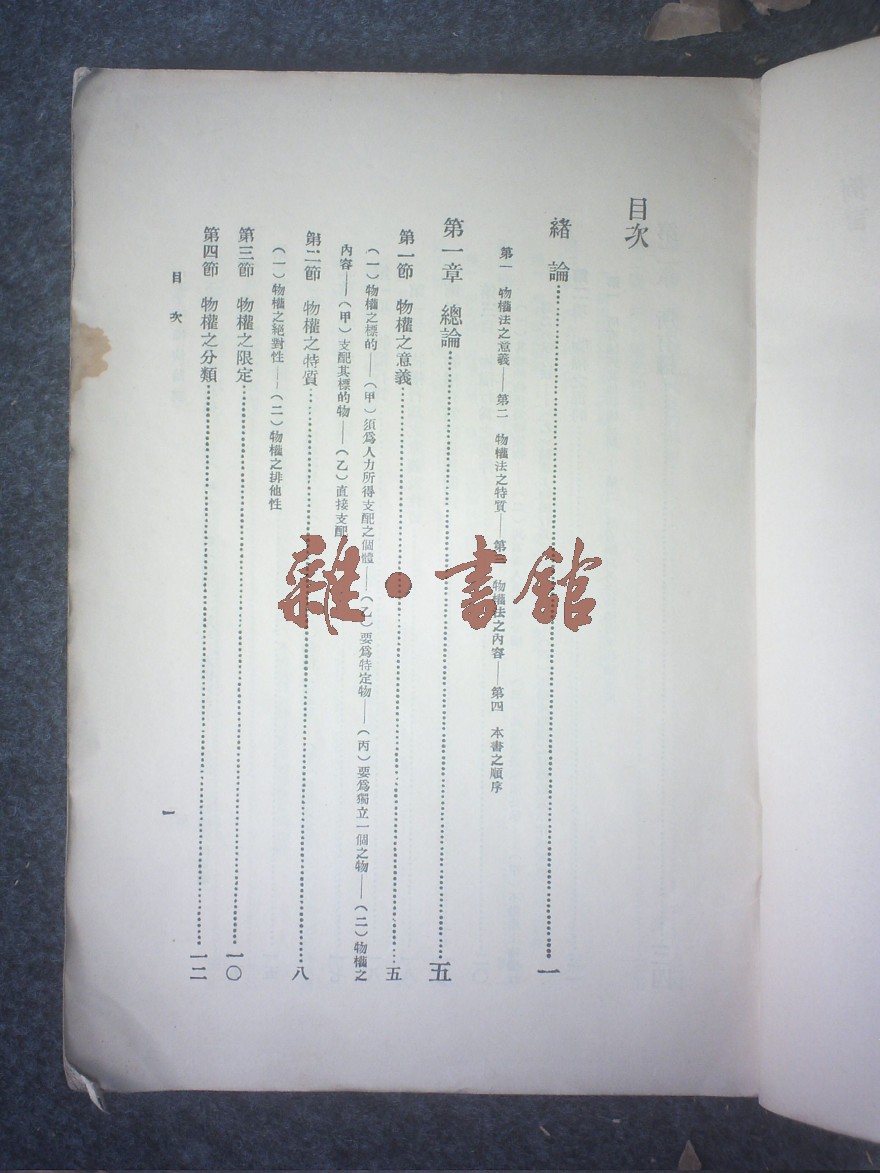 目次
緒　論……………一
第一　物權法之意義——第二　物權法之特質——第三　物權法之內容——第四　本書之順序
第一章　總論……………五
第一節　物權之意義……………五
（一）物權之標的——（甲）須爲人力所得支配之個體——（乙）要爲特定物——（丙）要爲獨立一個之物——（二）物權之
內容——（甲）支配其標的物——（乙）直接支配
第二節　物權之特質……………八
（一）物權之絕對性——（二）物權之排他性
第三節　物權之限定……………一〇
第四節　物權之分類……………一二
目　次
一
雜·書館